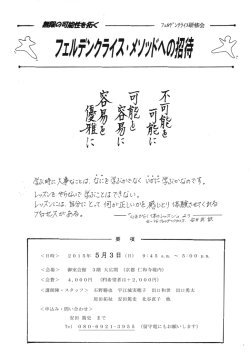 無限の可能性を拓く
フェルデンクライス研修会
フェルデンクライス・メソッドへの招待
不可能を
可能に
可能を
容易に
容易を
優雅に
学ぶ時に大事なことは、なにを学ぶかでなく いかに 学ぶかなのです。
レッスンを やらないで 学ぶことは できない。
レッスンには、自分にとって 何が正しいかを 感じとり 体験させてくれる
プロセスがある。
要 項
<日時> 2015年 5月3日(日) 9:45 a.m. ~ 5:00 p.m.
<会場> 御室会館 3階 大広間 (京都 仁和寺境内)
<会費> 4,000円
<講師陣・スタッフ>
<申込み・問い合わせ>
安田 賀史 まで
Tel 080-6921-3955 (留守電にもお願いします)